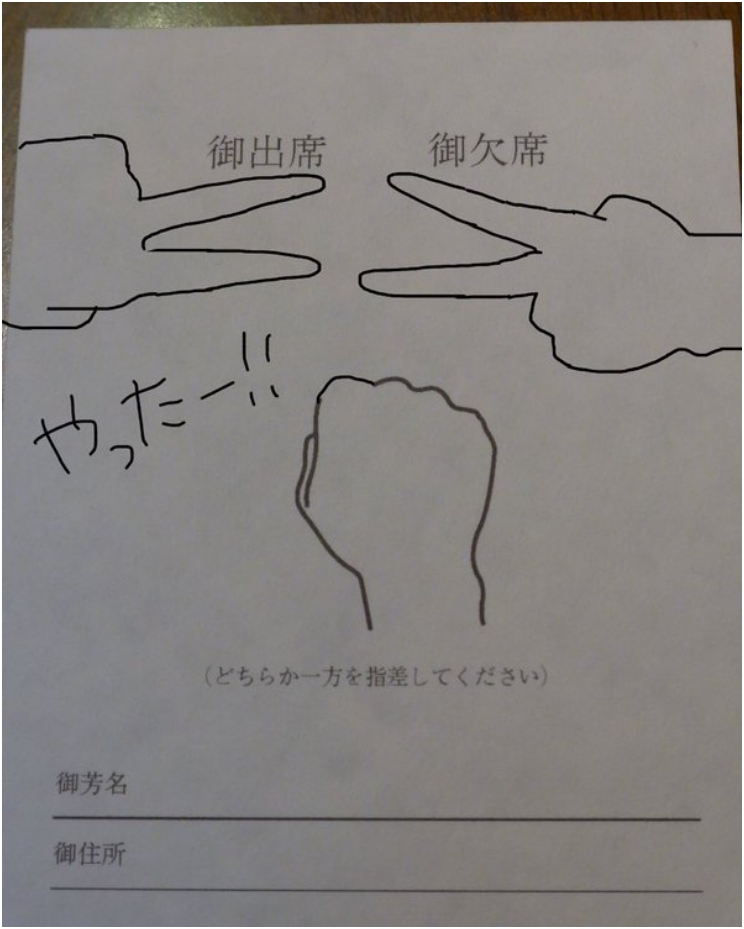 御出席 御欠席
やったー!!
(どちらか一方を指差してください)
御芳名
御住所